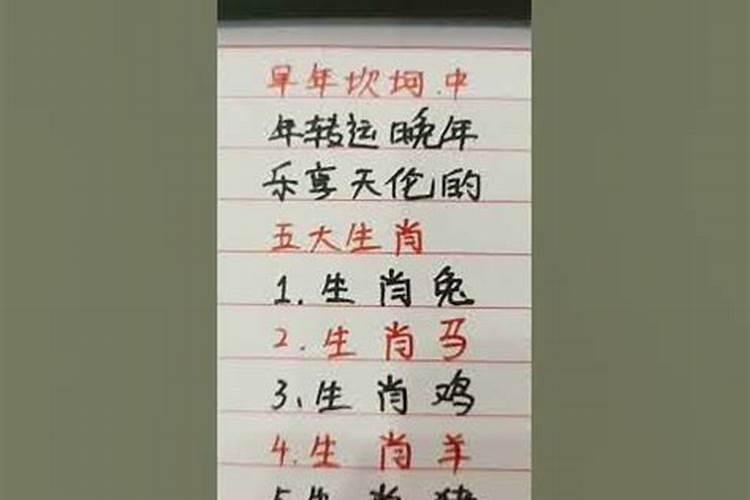 早年坎坷.中
年转运晚年
乐享天伦的
五大生肖
1.生肖兔
2.生肖马
3、生肖鸡
4.生肖羊
5生肖猪